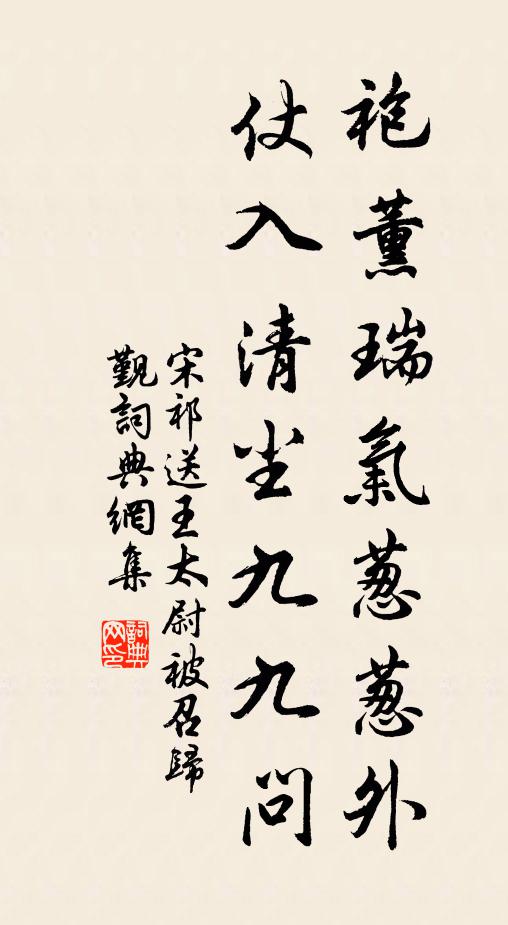 袍薰瑞氣葱葱外
仗入清尘九九問
宋祁送王太尉被召歸
覲詞典網集
詞典
网印